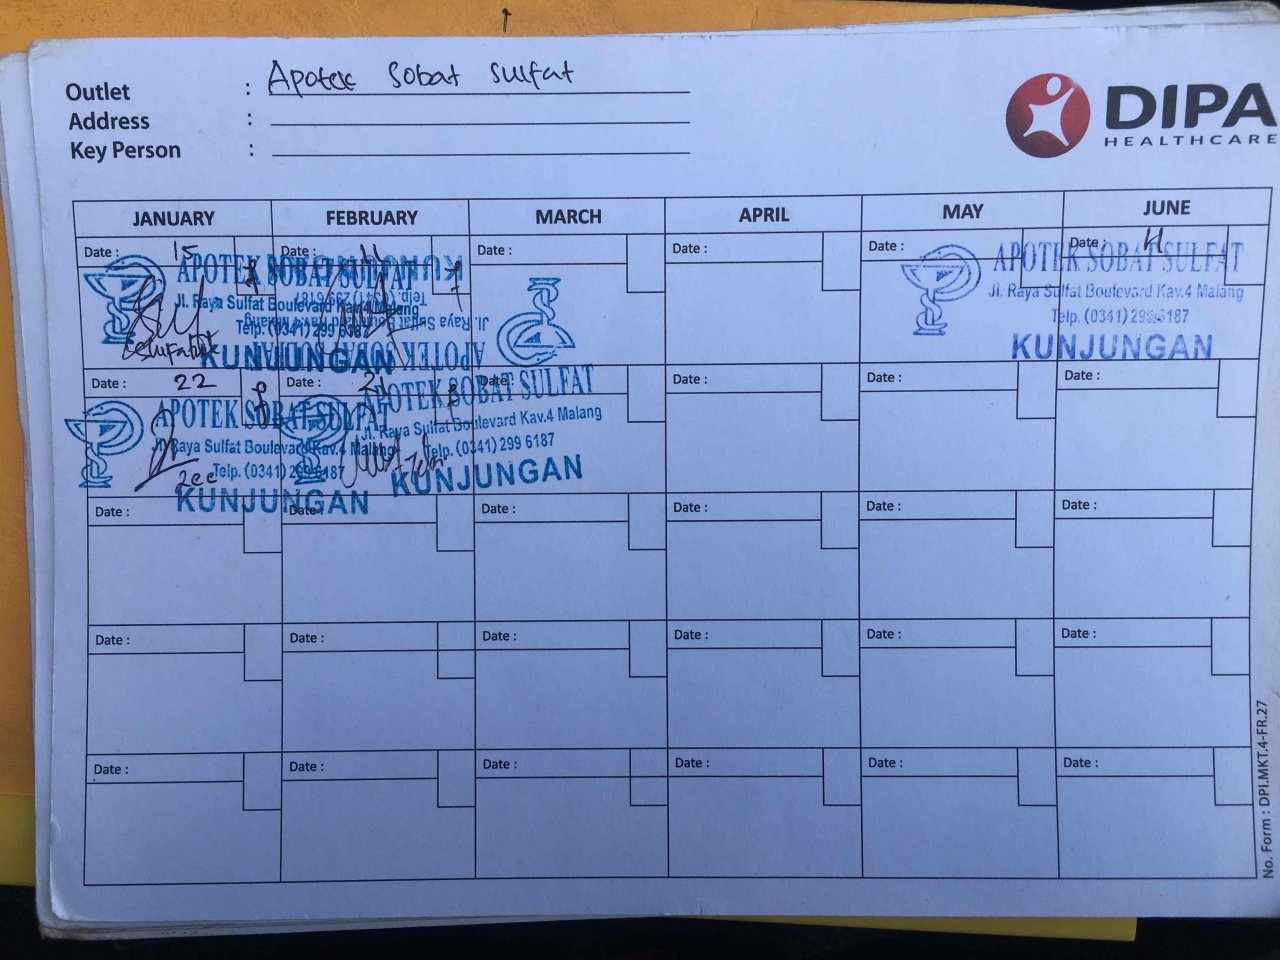 Outlet : Apotek Sobat Sulfat
Address :
Key Person :
DIPA
HEALTHCARE
JANUARY FEBRUARY MARCH APRIL MAY JUNE
Date : 15 Date : 11 Date : Date : Date : Date : H
APOTEK SOBAT SULFAT
Jl. Raya Sulfat Boulevard Kav.4 Malang
Telp. (0341) 299 6187
KUNJUNGAN
KUNJUNGAN
Telp. (0341) 299 6187
Jl. Raya Sulfat Boulevard Kav.4 Malang
APOTEK SOBAT SULFAT
APOTEK SOBAT SULFAT
Jl. Raya Sulfat Boulevard Kav.4 Malang
Telp. (0341) 299 6187
KUNJUNGAN
Date : 22 Date : Date : Date : Date : Date :
APOTEK SOBAT SULFAT
Jl. Raya Sulfat Boulevard Kav.4 Malang
Telp. (0341) 299 6187
KUNJUNGAN
APOTEK SOBAT SULFAT
Jl. Raya Sulfat Boulevard Kav.4 Malang
Telp. (0341) 299 6187
KUNJUNGAN
Date : Date : Date : Date : Date : Date :
Date : Date : Date : Date : Date : Date :
Date : Date : Date : Date : Date : Date :
No. Form : DPI.MKT.4-FR.27